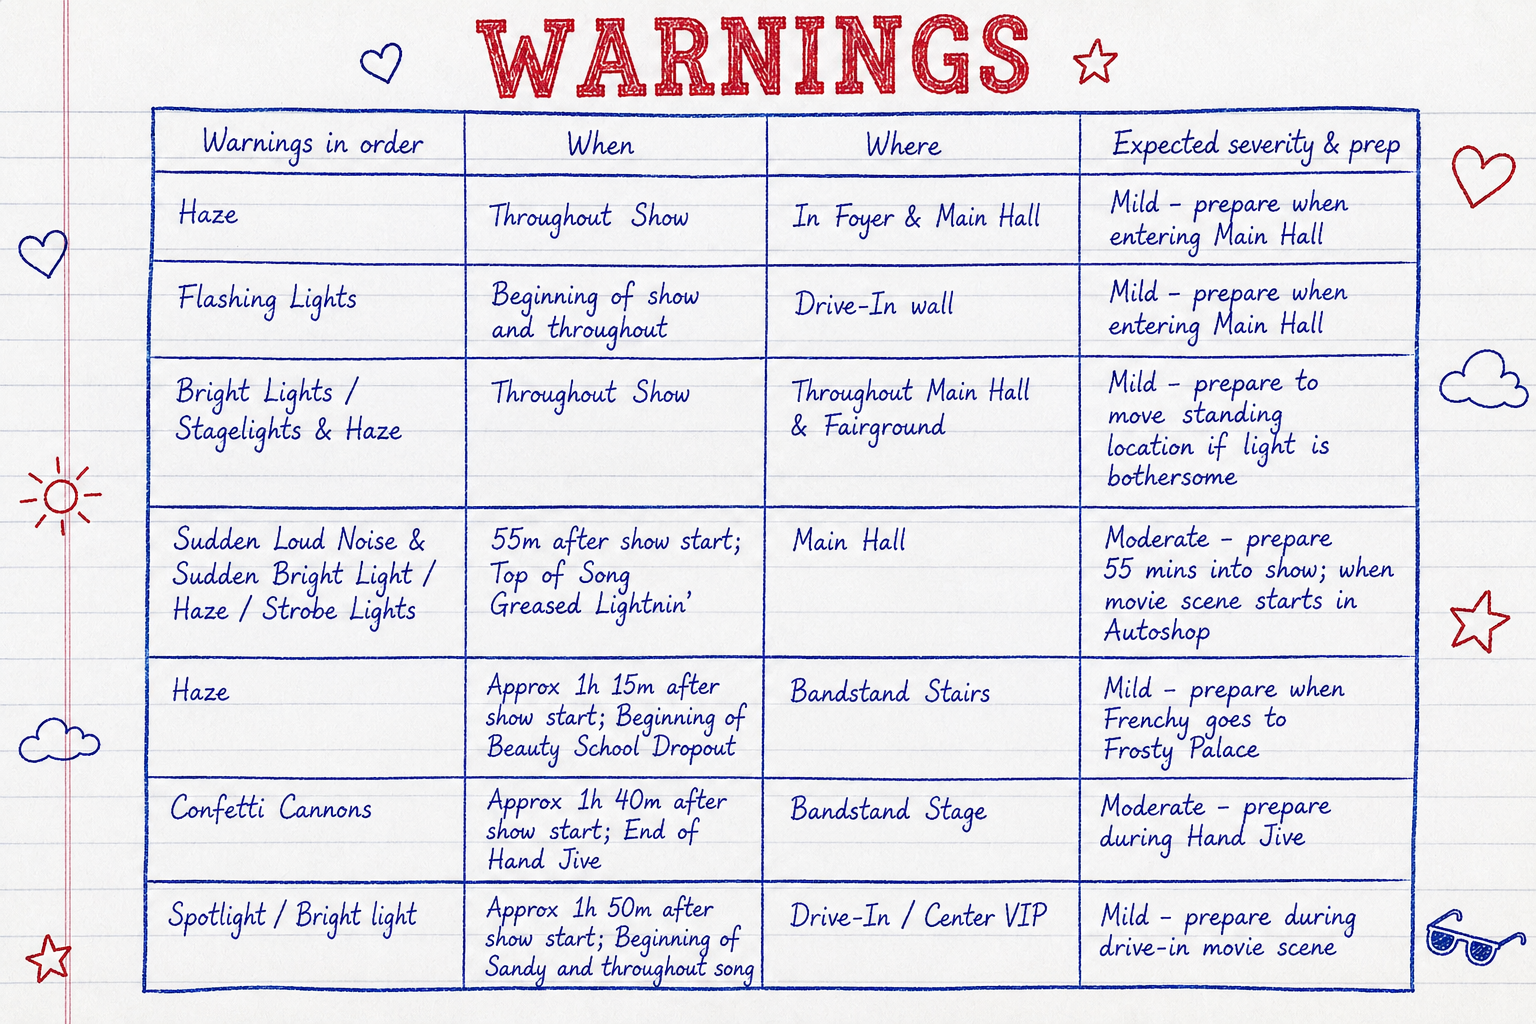 WARNINGS
Warnings in order
When
Where
Expected severity & prep
Haze
Throughout Show
In Foyer & Main Hall
Mild – prepare when
entering Main Hall
Flashing Lights
Beginning of show
and throughout
Drive-In wall
Mild – prepare when
entering Main Hall
Bright Lights /
Stagelights & Haze
Throughout Show
Throughout Main Hall
& Fairground
Mild – prepare to
move standing
location if light is
bothersome
Sudden Loud Noise &
Sudden Bright Light /
Haze / Strobe Lights
55m after show start;
Top of Song
Greased Lightnin'
Main Hall
Moderate – prepare
55 mins into show; when
movie scene starts in
Autoshop
Haze
Approx 1h 15m after
show start; Beginning of
Beauty School Dropout
Bandstand Stairs
Mild – prepare when
Frenchy goes to
Frosty Palace
Confetti Cannons
Approx 1h 40m after
show start; End of
Hand Jive
Bandstand Stage
Moderate – prepare
during Hand Jive
Spotlight / Bright light
Approx 1h 50m after
show start; Beginning of
Sandy and throughout song
Drive-In / Center VIP
Mild – prepare during
drive-in movie scene